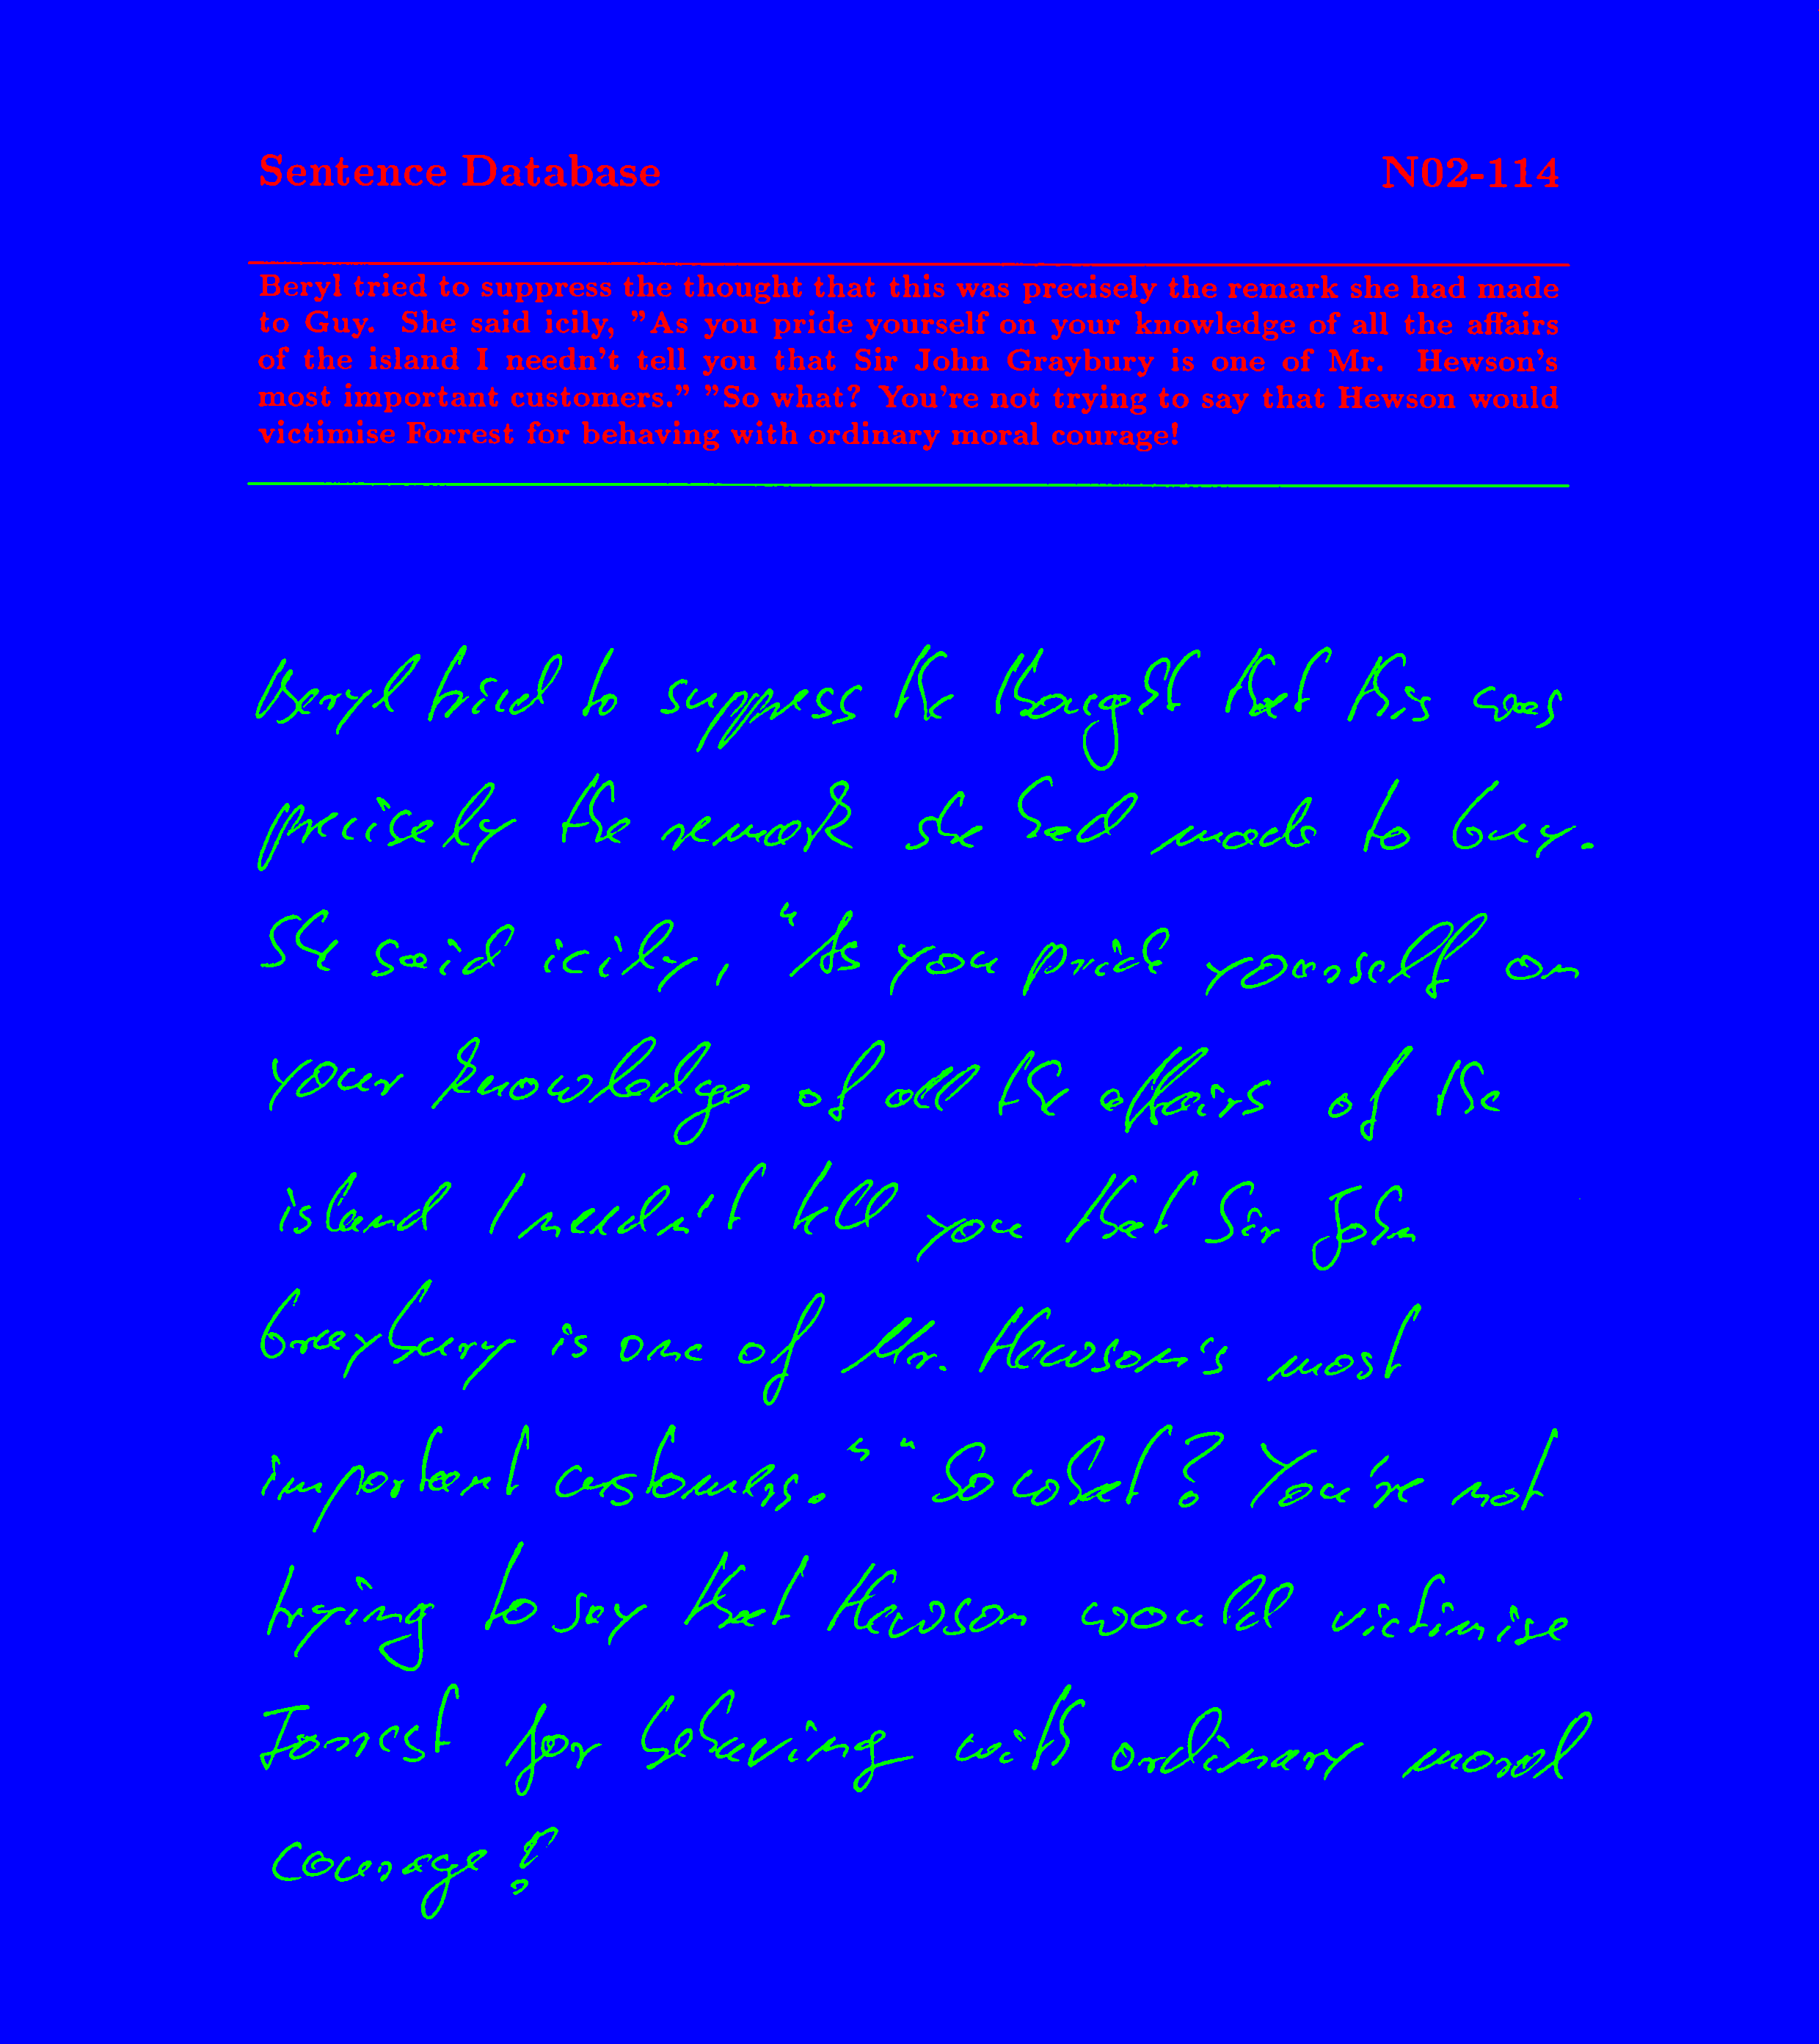 Sentence Database N02-114
Beryl tried to suppress the thought that this was precisely the remark she had made
to Guy. She said icily, "As you pride yourself on your knowledge of all the affairs
of the island I needn't tell you that Sir John Graybury is one of Mr. Hewson's
most important customers." "So what? You're not trying to say that Hewson would
victimise Forrest for behaving with ordinary moral courage!
Beryl tried to suppress the thought that this was
precisely the remark she had made to Guy.
She said icily, "As you pride yourself on
your knowledge of all the affairs of the
island I needn't tell you that Sir John
Graybury is one of Mr. Hewson's most
important customers." "So what? You're not
trying to say that Hewson would victimise
Forrest for behaving with ordinary moral
courage!